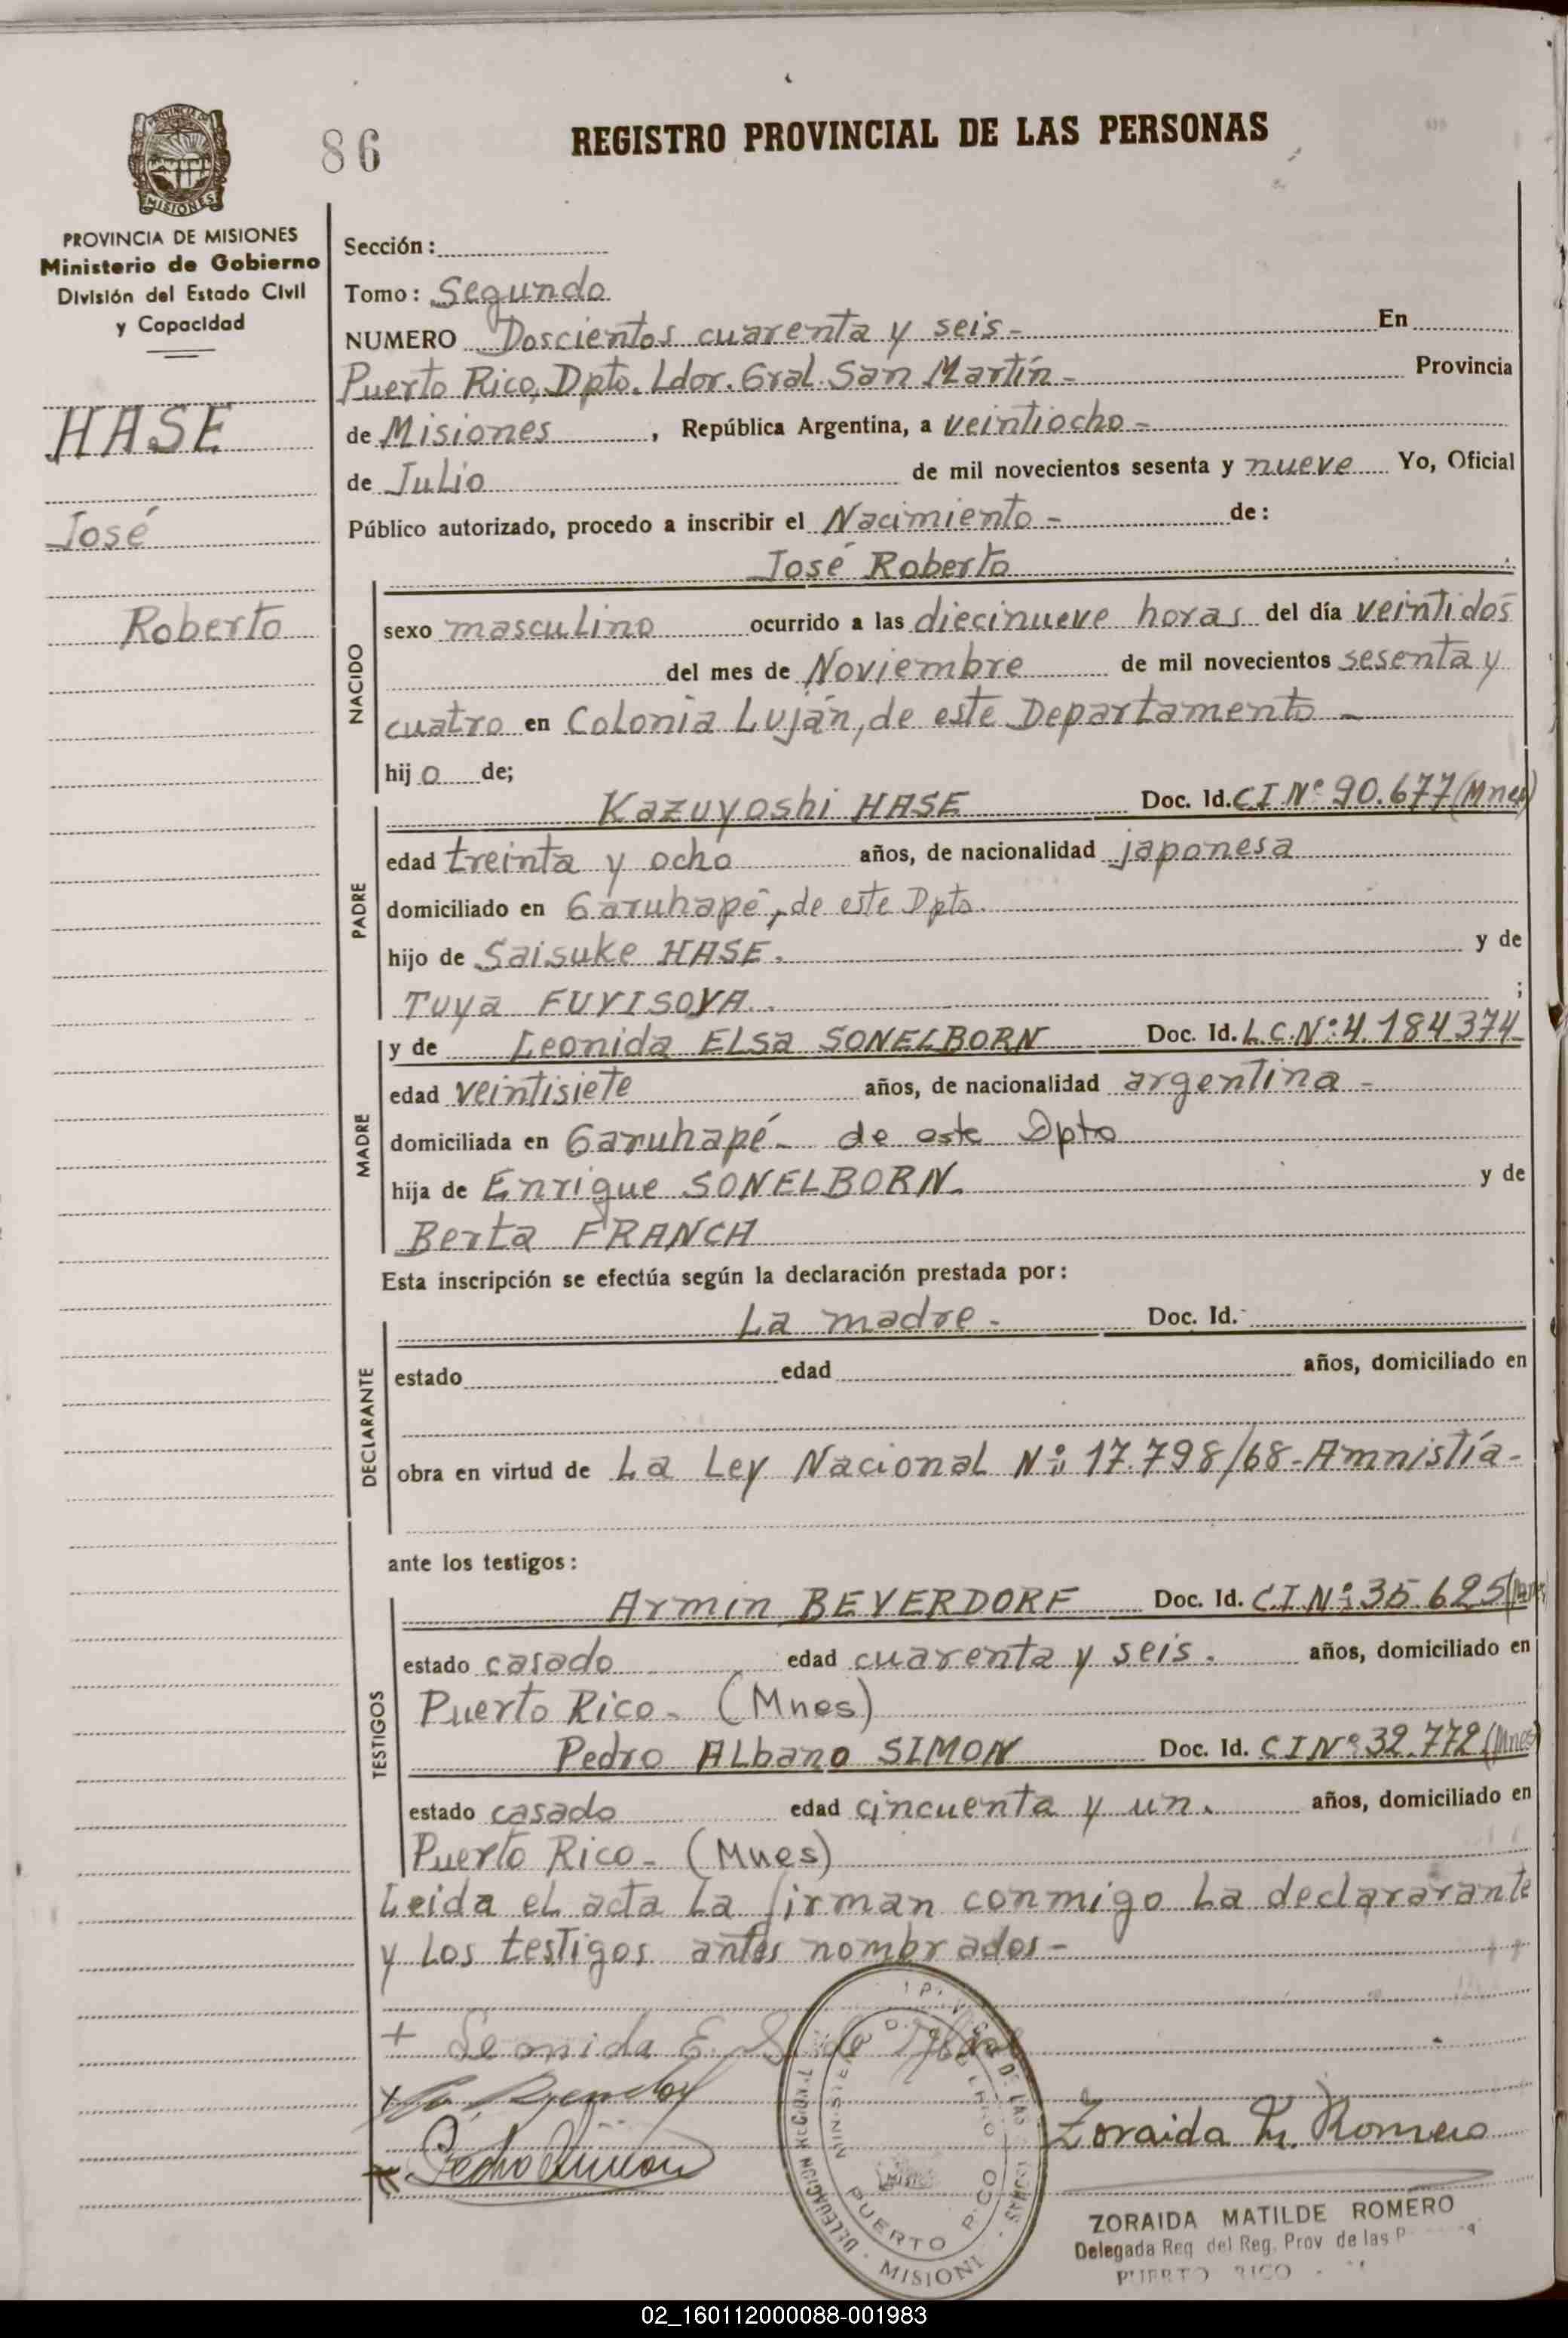 PROVINCIA DE
MISIONES
86
REGISTRO PROVINCIAL DE LAS PERSONAS
PROVINCIA DE MISIONES
Ministerio de Gobierno
División del Estado Civil
y Capacidad
HASE
José
Roberto
Sección:
Tomo: Segundo
NUMERO Doscientos cuarenta y seis - En
Puerto Rico, Dpto. Ldor. Gral. San Martín - Provincia
de Misiones, República Argentina, a veintiocho -
de Julio de mil novecientos sesenta y nueve Yo, Oficial
Público autorizado, procedo a inscribir el Nacimiento - de:
José Roberto
NACIDO
sexo masculino ocurrido a las diecinueve horas del día veintidos
del mes de Noviembre de mil novecientos sesenta y
cuatro en Colonia Luján, de este Departamento -
hijo de;
PADRE
Kazuyoshi HASE Doc. Id. CI Nº 90.677 (Mnes)
edad treinta y ocho años, de nacionalidad japonesa
domiciliado en Garuhapé, de este Dpto.
hijo de Saisuke HASE. y de
Tuya FUYISOYA. ;
MADRE
y de Leonida ELsa SONELBORN Doc. Id. L.C.Nº: 4.184374
edad veintisiete años, de nacionalidad argentina -
domiciliada en Garuhapé - de este Dpto
hija de Enrigue SONELBORN. y de
Berta FRANCH
Esta inscripción se efectúa según la declaración prestada por:
DECLARANTE
La madre - Doc. Id.
estado edad años, domiciliado en
obra en virtud de La Ley Nacional Nº: 17.798/68-Amnistía-
ante los testigos:
TESTIGOS
Armin BEYERDORF Doc. Id. C.I Nº: 35.625 (Mnes)
estado casado edad cuarenta y seis. años, domiciliado en
Puerto Rico - (Mnes)
Pedro ALbano SIMON Doc. Id. C I Nº 32.772 (Mnes)
estado casado edad cincuenta y un. años, domiciliado en
Puerto Rico - (Mnes)
Leida el acta la firman conmigo la declararante
y los testigos antes nombrados -
+ Leonida E. S. de
Pedro Simon
Zoraida M. Romero
DELEGACION REGIONAL
DE LAS
PUERTO RICO
MISIONES
ZORAIDA MATILDE ROMERO
Delegada Reg del Reg. Prov de las
PUERTO RICO
02_160112000088-001983